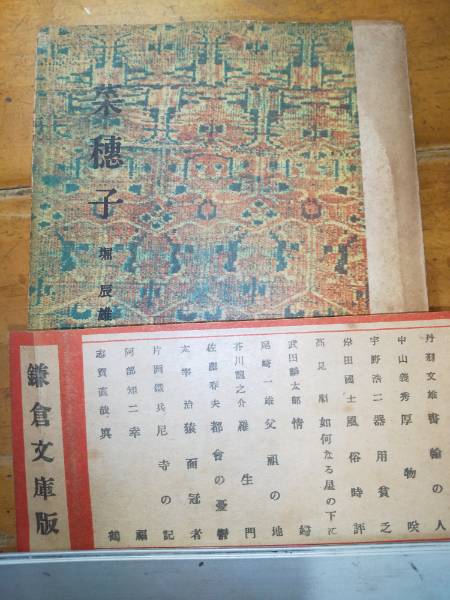 菜穂子
堀辰雄
丹羽文雄 書翰の人
中山義秀 厚物咲
宇野浩二 器用貧乏
岸田國士 風俗時評
高見順 如何なる星の下に
武田麟太郎 情婦
尾崎一雄 父祖の地
芥川龍之介 羅生門
佐藤春夫 都會の憂鬱
太宰治 猿面冠者
片岡鐵兵 尼寺の記
阿部知二 幸福
志賀直哉 真鶴
鎌倉文庫版